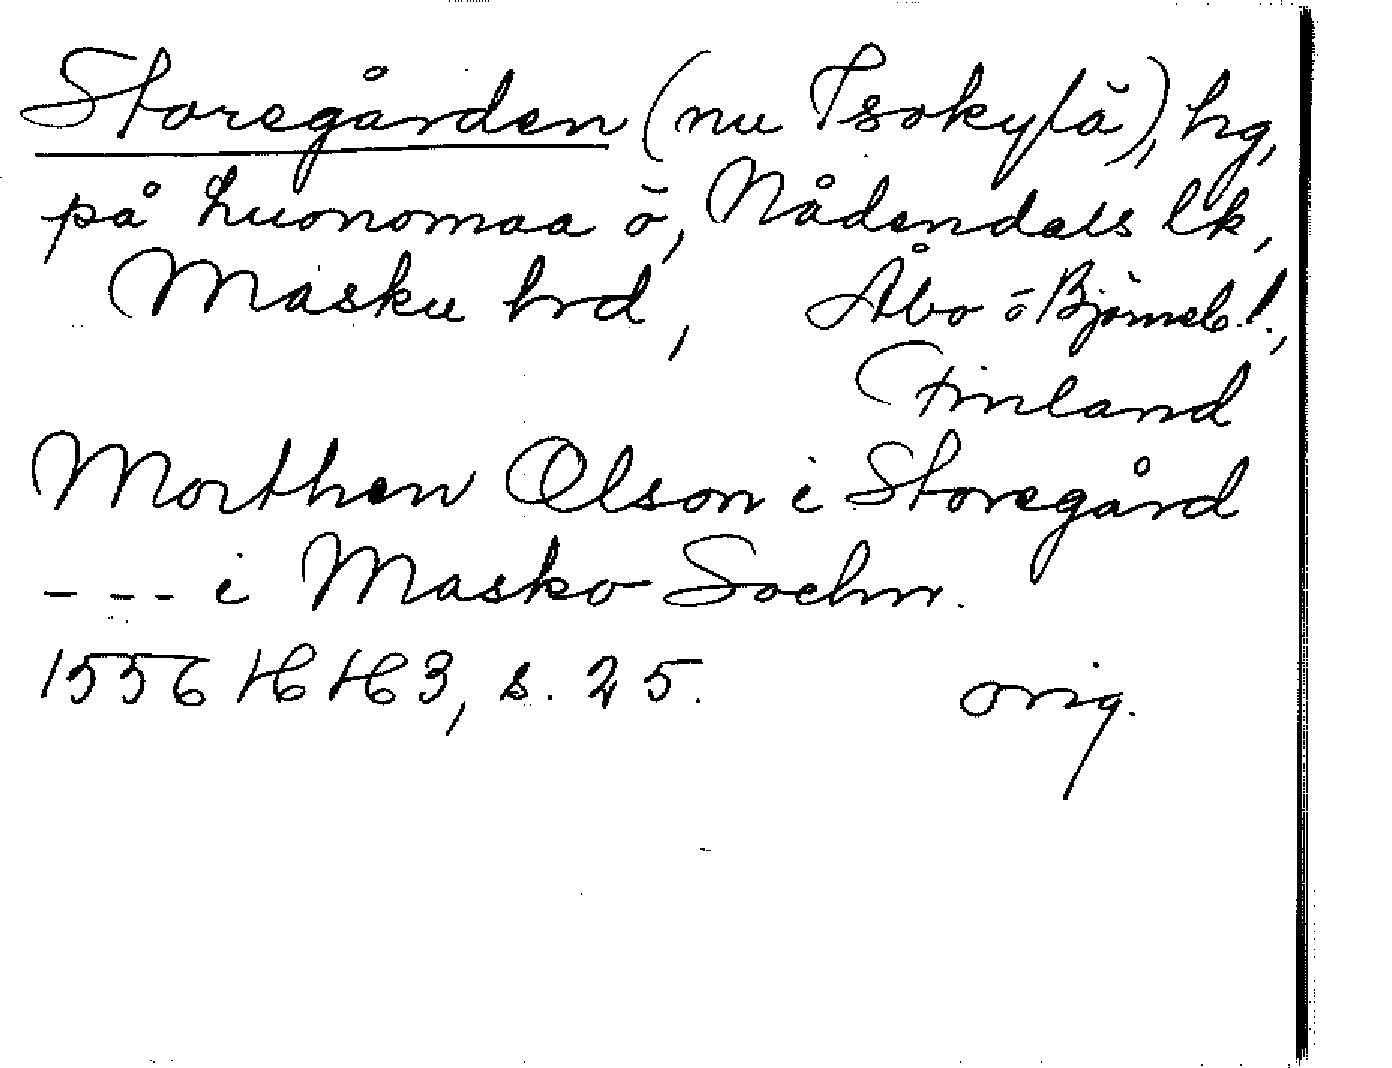 Storegården (nu Isokylä), hg,
på Luonomaa ö, Nådendals lk,
Masku hrd, Åbo o Björneb. l.,
Finland
Morthen Olson i Storegård
--- i Masko Sochn.
1556 HH3, s. 25. orig.